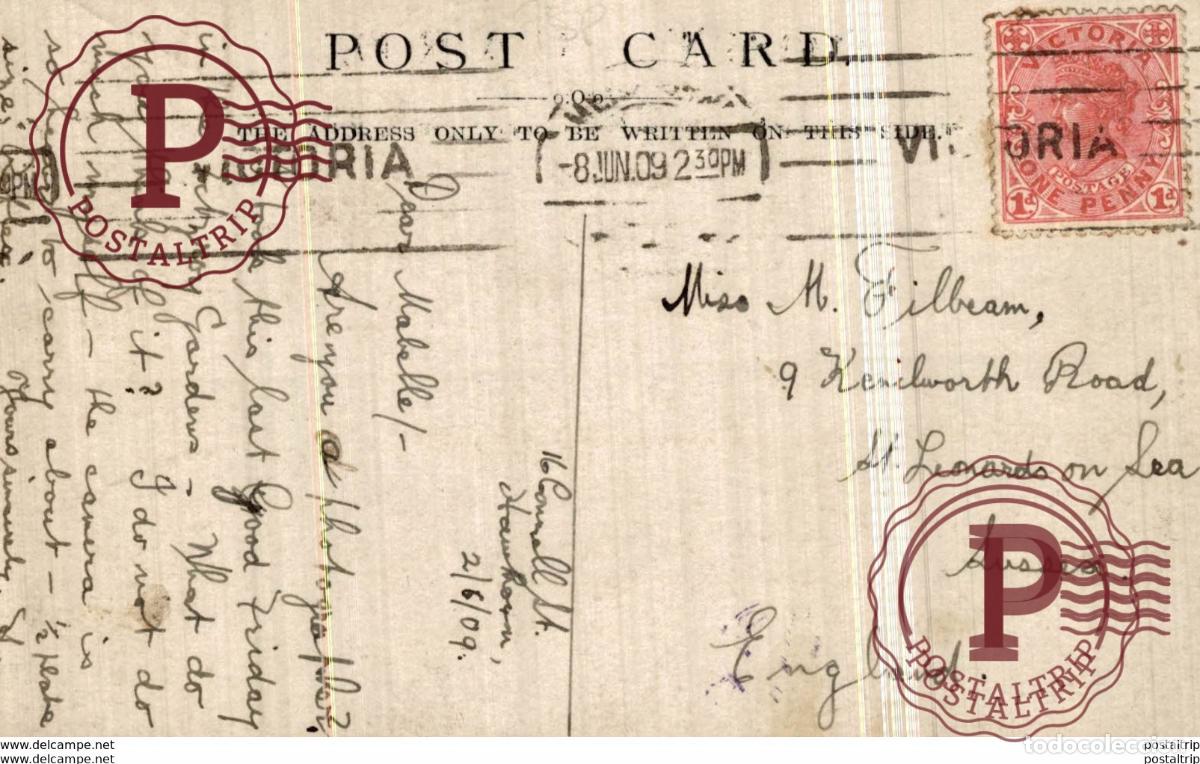 POST CARD.
THE ADDRESS ONLY TO BE WRITTEN ON THIS SIDE.
VICTORIA
-8 JUN.09 2 30PM
VICTORIA
POSTAGE
ONE PENNY
1d 1d
Miss M. Filbeam,
9 Kenilworth Road,
St. Leonards on Sea
Sussex.
England.
16 Connell St.
Hawthorn,
2/6/09.
Dear Mabelle/-
Are you a photographer?
this last Good Friday
in Gardens - What do
you of it? I do not do
much - the camera is
so to carry about - ½ plate
size, Yours sincerely,
P
POSTALTRIP
P
POSTALTRIP
POSTALTRIP
todocoleccion
www.delcampe.net
www.delcampe.net
postaltrip
postaltrip